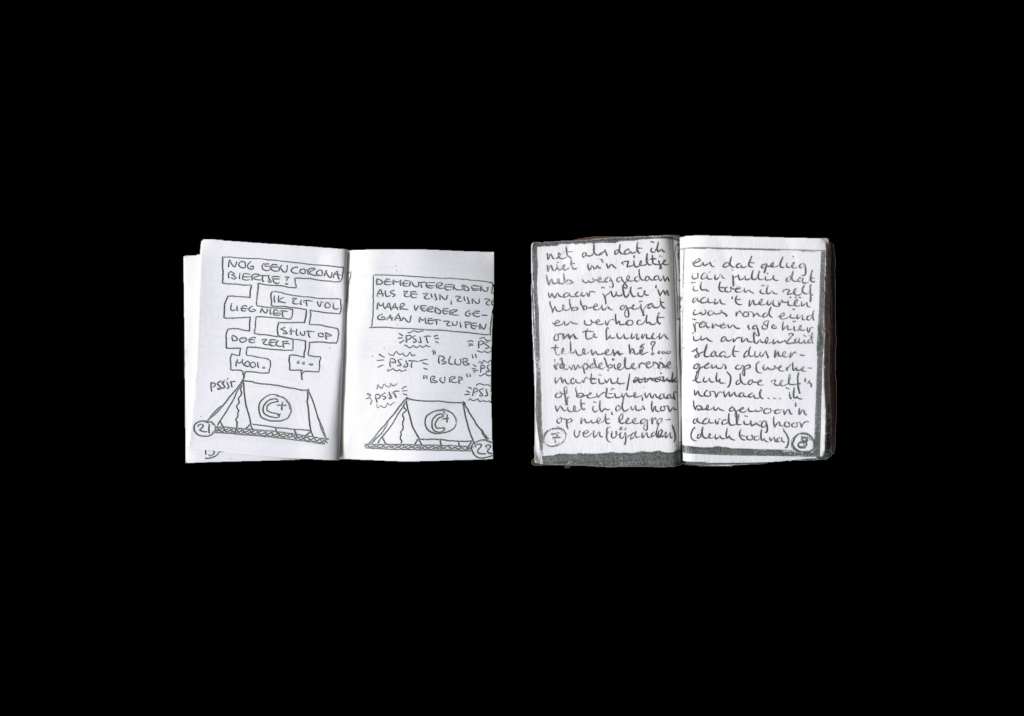 NOG EEN CORONA
BIERTJE?
IK ZIT VOL
LIEG NIET
SHUT OP
DOE ZELF
...
MOOI.
PSSST
C+
21
DEMENTERENDEN
ALS ZE ZIJN, ZIJN ZE
MAAR VERDER GE-
GAAN MET ZUIPEN
PSST
PS
PSST
"BLUB"
PS
"BURP"
PSST
PSS
C+
22
net als dat ik
niet m'n zieltje
heb weggedaan
maar jullie 'm
hebben gejat
en verkocht
om te kunnen
tekenen hè?
martine/
of bertine, maar
niet ik, dus hou
op met leegro-
ven (vijanden)
7
en dat gelieg
van jullie dat
ik toen ik zelf
aan 't neuriën
was rond eind
jaren 1980 hier
in arnhem zuid
slaat dus ner-
gens op (werke-
lijk) doe zelf 's
normaal... ik
ben gewoon 'n
aardling hoor
(denk tuchna)
8